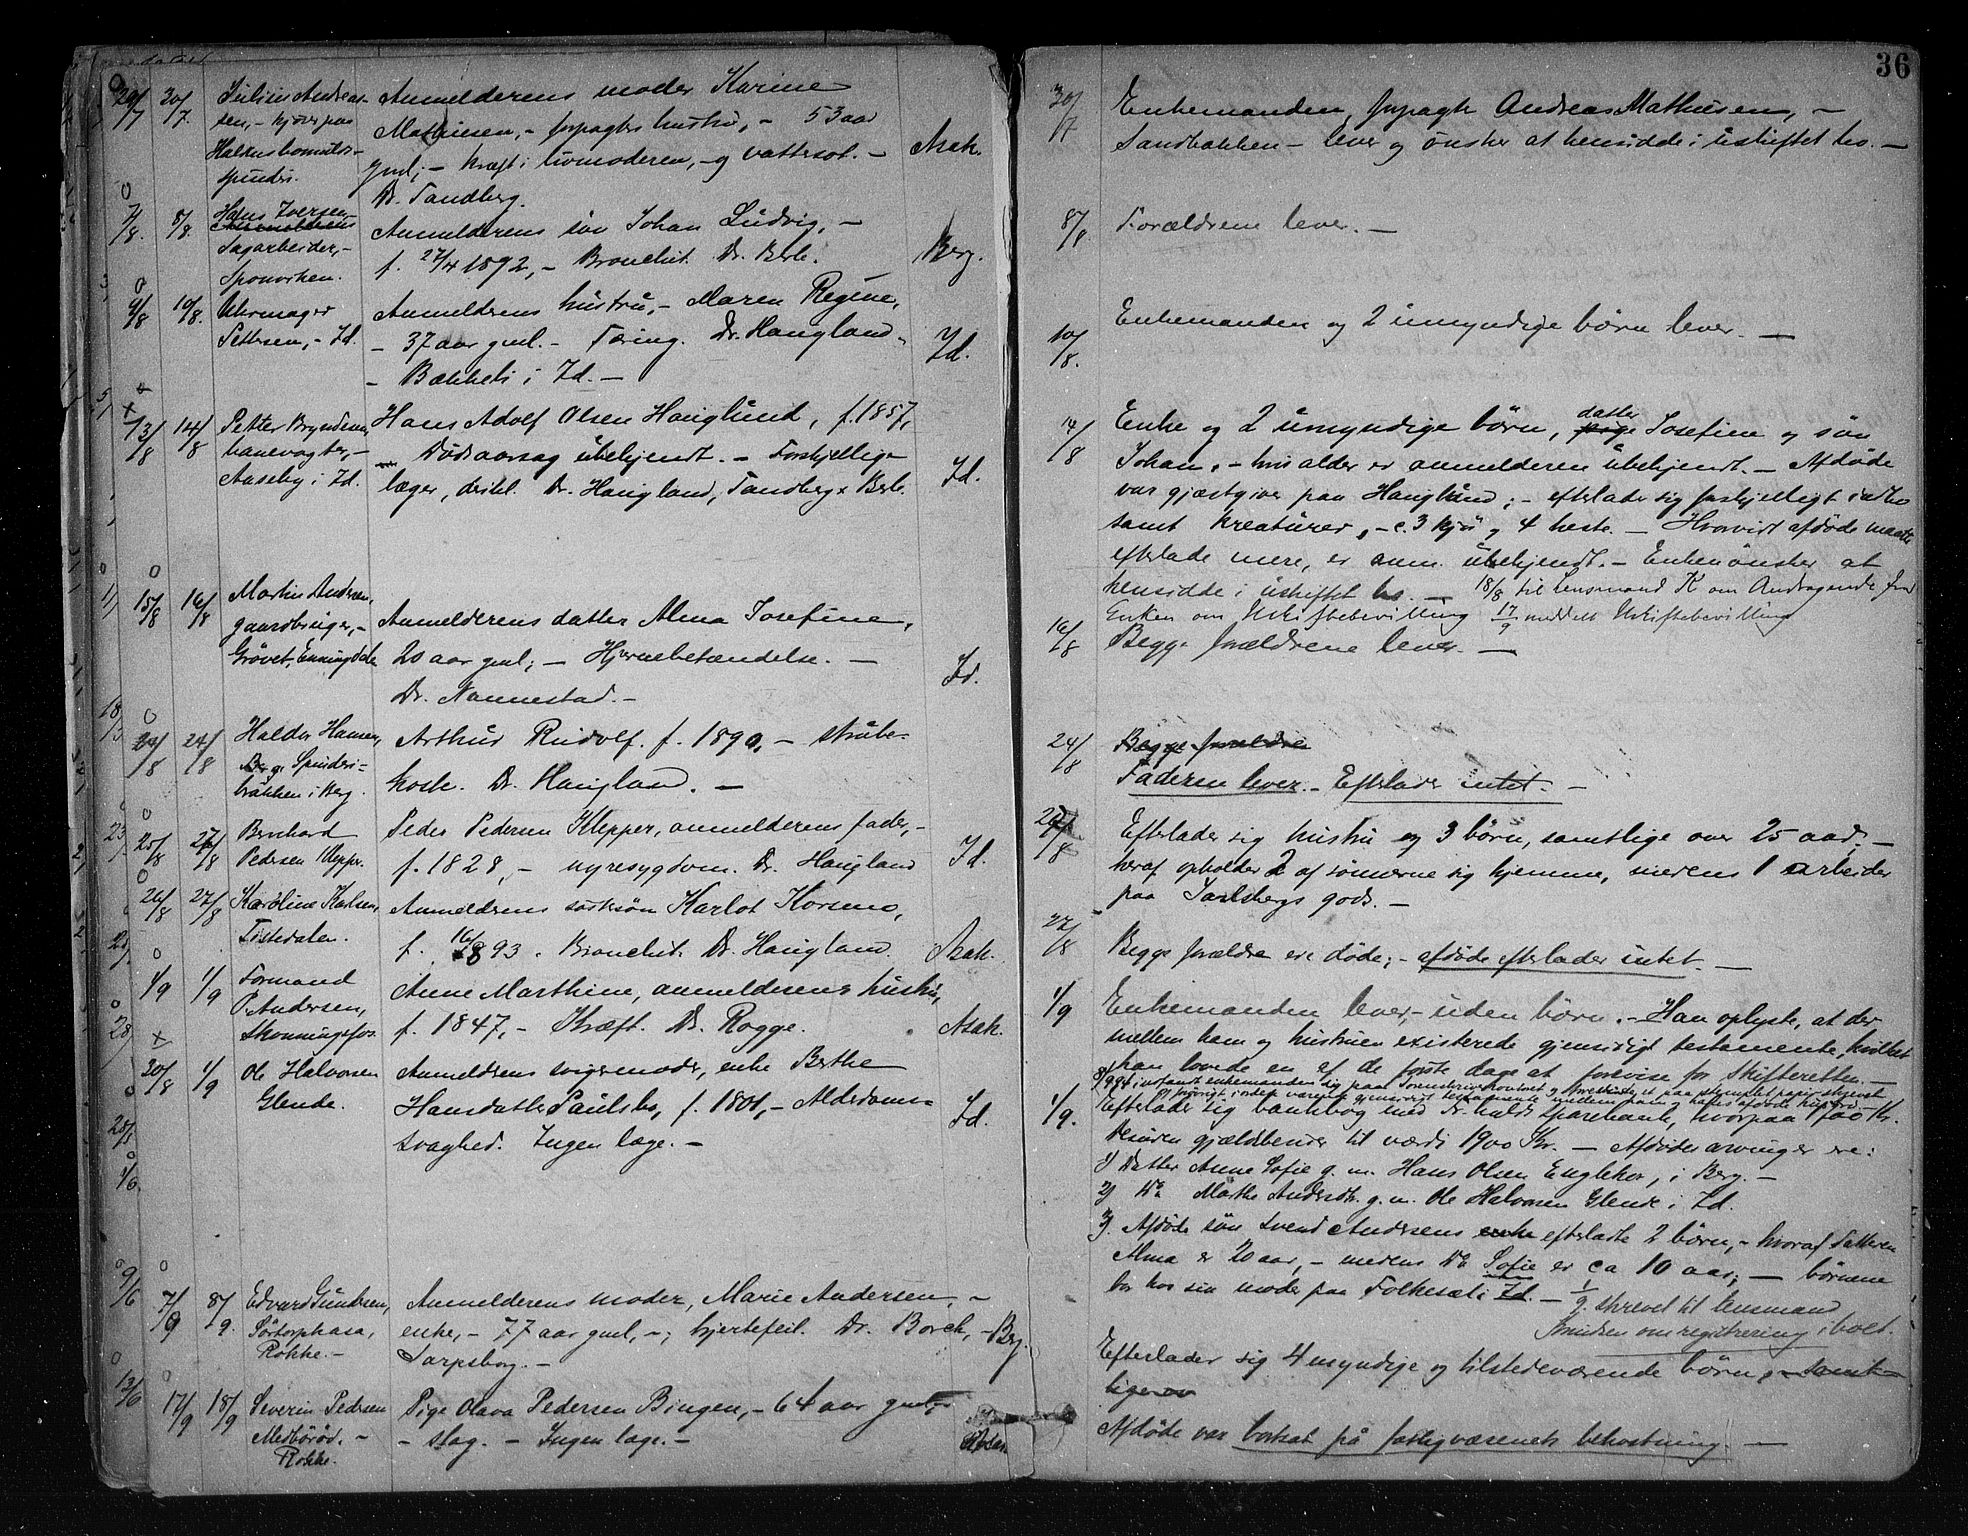 36
29/7 30/7. Julius Andrea- Anmelderens moder Karine
sen, - kjører paa Mathiesen, - forpagters hustru, - 53 aar
Halkns bomulds- gml; - kræft i livmoderen, - og vattersot. - Asak.
spinderi. Dr. Tandberg.
30/7 Enkemanden, forpagter Andreas Mathiesen, -
Sandbakken - lever og ønsker at hensidde i uskiftet bo. -
7/8. 8/8. Hans Iversen
Sagarbeider, - Anmelderens søn Johan Ludvig, -
Sponvirken. f. 27/4 1892, - Bronchit. Dr. Berle. Berg.
8/8 Forældrene lever. -
9/8 10/8. Uhrmager Anmelderens hustru, - Maren Regine,
Pettersen, - Id. - 37 aar gml. - Tæring. Dr. Haugland. Id.
- Bakkeli i Id. -
10/8. Enkemanden og 2 umyndige børn lever. -
13/8 14/8 Petter Bryndsen, Hans Adolf Olsen Hauglund, f. 1857,
banevogter, - Dødsaarsag ubekjendt. - Forskjellige
Aaseby i Id. læger, deribl. Dr. Haugland, Tandberg & Berle. Id.
14/8 Enke og 2 umyndige børn, datter Josefine og søn
Johan, - hvis alder er anmelderen ubekjendt. - Afdøde
var gjæstgiver paa Hauglund; - efterlader sig forskjelligt indbo
samt kreaturer, - c. 3 kjør og 4 heste. - Hvorvidt afdøde maatte
efterlade mere, er anm. ubekjendt. - Enken ønsker at
hensidde i uskiftet bo. - 18/8 til Lensmand K om Andragende fra
Enken om Uskiftebevilling 17/9 meddelt Uskiftebevilling
15/8 16/8 Martin Andersen,
gaardbruger, - Anmelderens datter Alma Josefine,
Grøvet, Enningdalen 20 aar gml; - Hjernebetændelse. - Id.
Dr. Nannestad. -
16/8 Begge forældrene lever. -
24/8 24/8 Haldor Hansen, Arthur Rudolf. f. 1890, - strube-
Spinderi- hoste. Dr. Haugland. -
bakken i Berg.
24/8 Begge forældre
Faderen lever. - Efterlader intet. -
25/8 27/8 Bernhard Peder Pedersen Klepper, anmelderens fader, -
Pedersen Klepper. f. 1828, - nyresygdom. Dr. Haugland Id.
27/8 Efterlader sig hustru og 3 børn, samtlige over 25 aar, -
heraf opholder 2 af sønnerne sig hjemme, medens 1 arbeider
paa Jarlsbergs gods. -
26/8 27/8 Karoline Karlsen, Anmelderens søstersøn Karlot Korsmo,
Tistedalen. f. 16/8 93. Bronchit. Dr. Haugland. Asak.
27/8 Begge forældre ere døde; - afdøde efterlader intet. -
1/9 1/9 Formand Anne Marthine, anmelderens hustru,
P. Andersen, f. 1847, - Kræft. Dr. Rogge. Asak.
Skonningsfos
1/9 Enkemanden lever, - uden børn. - Han oplyste, at der
mellem ham og hustruen existerede gjensidigt testamente, hvilket
han lovede en af de første dage at forevise for Skifteretten. -
20/8 1/9 Ole Halvorsen Anmelderens svigermoder, enke Berthe
Glende. Hansdatter Paulsbo, f. 1801, - Alderdoms-
svaghed. Ingen læge. - Id.
1/9. Efterlader sig bankbog med Fr.halds Sparebank, hvorpaa 1500 Kr.
desuden gjældsbeviser til værdi 1900 Kr. - Afdødes arvinger ere:
1) Datter Anne Sofie g. m. Hans Olsen Englekor, i Berg. -
2) Do Marthe Andersdtr. g. m. Ole Halvorsen Glende i Id.
3) Afdøde søn Svend Andersens enke efterladte 2 børn, - hvoraf datteren
Alma er 20 aar, - medens Do Sofie er ca 10 aar; - børnene
bor hos sin moder paa Folkesæt i Id. - 1/9 skrevet til lensmand
Knudsen om registrering i boet.
7/9 8/9. Edvard Gundersen, Anmelderens moder, Marie Andersen, -
Sørtorphasa, enke, - 77 aar gml, -; hjertefeil. Dr. Borch, - Berg.
Rokke. - Sarpsborg. -
Efterlader sig 4 myndige og tilstedeværende børn, - samt-
lige ov
17/9 18/9 Severin Pedersen Pige Olava Pedersen Bingen, - 64 aar gml, -
Medbørød. - - slag. - Ingen læge. -
Rokke.
Afdøde var bortsat på fattigvæsenets bekostning. -